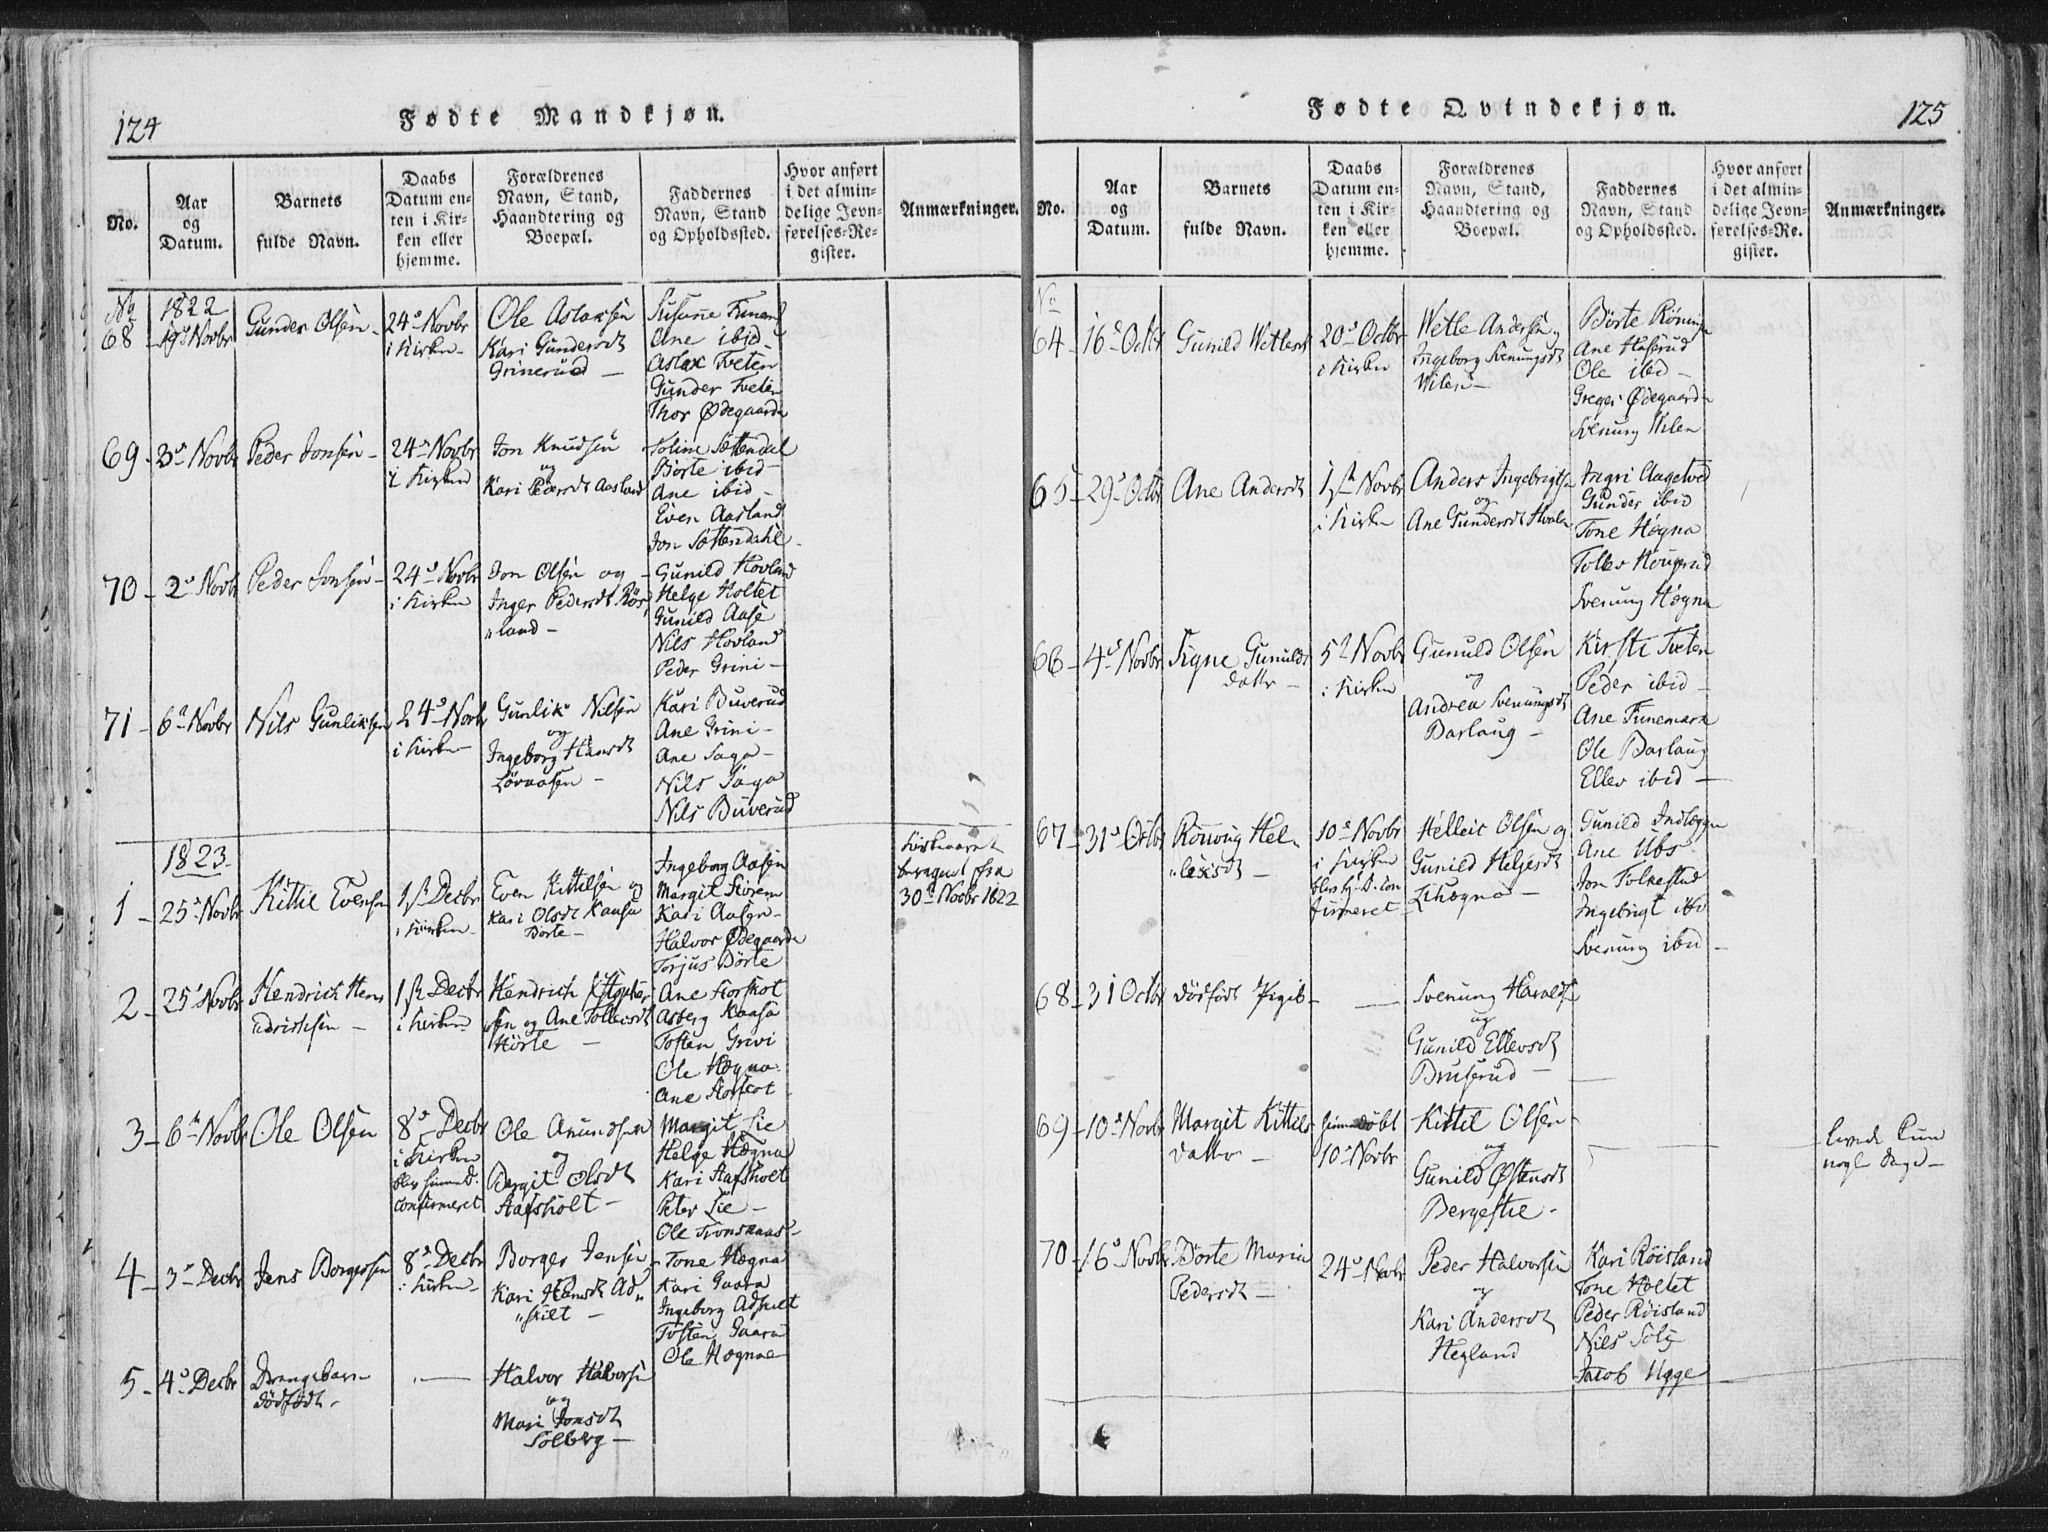 124
Fødte Mandkjøn.
No.
Aar
og
Datum.
Barnets
fulde Navn.
Daabs
Datum en-
ten i Kir-
ken eller
hjemme.
Forældrenes
Navn, Stand,
Haandtering og
Boepæl.
Faddernes
Navn, Stand
og Opholdssted.
Hvor anført
i det almin-
delige Jevn-
førelses-Re-
gister.
Anmærkninger.
No
68
1822
19d Novbr
Gunder Olsen
24d Novbr
i Kirken
Ole Aslaksen
Kari Gundersdt
Grinerud
Ane ibid
Aslak Tveten
Gunder Tveten
Thor Ødegaarde
69
3d Novbr
Peder Jonsen
24d Novbr
i Kirken
Jon Knudsen
og
Kari Pedersdt Aasland
Børte ibid
Ane ibid
Even Aasland
Jon Sættendahl
70
2d Novbr
Peder Jonsen
24d Novbr
i Kirken
Jon Olsen og
Inger Pedersdt Røs
land
Gunild Hovland
Helge Holtet
Gunild Aase
Nils Hovland
Peder Grini
71
6d Novbr
Nils Gunliksen
24d Novbr
i Kirken
Gunlik Nilsen
og
Ingeborg Hansdt
Løvaasen
Kari Buverud
Ane Grini
Ane Saga
Nils Saga
Nils Buverud
1823
1
25d Novbr
Kittil Evensen
1st Decbr
i Kirken
Even Kittilsen og
Kari Olsdt Kaasa
Børte
Ingeborg Aasen
Margit
Kari Aasen
Halvor Ødegaarde
Torjus Børte
Kirkeaaret
beregnet fra
30d Novbr 1822
2
25d Novbr
Hendrich Hen
drichsen
1st Decbr
i Kirken
Hendrich
sen og Ane Tollevsdt
Hørte
Ane Storskot
Asberg Kaasa
Tosten Grivi
Ole Hægna
Ane Storskot
3
6d Novbr
Ole Olsen
8d Decbr
i Kirken
blev hjemmed.
confirmeret
Ole Anundsen
og
Bergit Olsdt
Hafsholt
Margit Lie
Helge Hægna
Kari Hafsholt
Peter Lie
Ole Tronsaas
4
3d Decbr
Jens Borgersen
8d Decbr
i Kirken
Borger Jensen
Kari Hansdt Ad
skilt
Tone Hægna
Kari Gaara
Ingeborg Adskilt
Tosten Gaara
Ole Hægna
5
4d Decbr
Drengebarn
dødfødt
Halvor Halvorsen
og
Mari Jonsdt
Solberg
Fødte Qvindekjøn.
125
No.
Aar
og
Datum.
Barnets
fulde Navn.
Daabs
Datum en-
ten i Kir-
ken eller
hjemme.
Forældrenes
Navn, Stand,
Haandtering og
Boepæl.
Faddernes
Navn, Stand
og Opholdssted.
Hvor anført
i det almin-
delige Jevn-
førelses-Re-
gister.
Anmærkninger.
No
64
16d Octbr
Gunild Wetlesdt
20d Octbr
i Kirken
Wetle Andersen
Ingeborg Svenungsdt
Wilen
Børte Rønningen
Ane Haserud
Ole ibid
Greger Ødegaarde
Svenung Wilen
65
29d Octbr
Ane Andersdt
1st Novbr
i Kirken
Anders Ingebrigtsen
og
Ane Gundersdt Hvalen
Ingri Aagetved
Gunder ibid
Tone Høgna
Tollev Hougerud
Svenung Høgna
66
4d Novbr
Signe Gunulds
datter
5d Novbr
i Kirken
Gunuld Olsen
og
Andrea Svenungsdt
Barlaug
Kirsti Tveten
Peder ibid
Ane Funemark
Ole Barlaug
Ellev ibid
67
31d Octbr
Rønnug Hel
leisdt
10d Novbr
i Kirken
blev hj. d. con
firmeret
Helleic Olsen og
Gunild Heljesdt
Lihægna
Gunild Indlæggen
Ane Ubs
Jon Folkestad
Ingebrigt ibid
Svenung ibid
68
31 Octbr
dødfødt Pigeb
Svenung Haraldsen
og
Gunild Ellevsdt
Bruserud
69
10d Novbr
Margit Kittils
datter
hjemmedøbt
10d Novbr
Kittil Olsen
og
Gunild Østensdt
Bergestie
levede kun
nogle Dage
70
16d Novbr
Børte Maria
Pedersdt
24d Novbr
Peder Halvorsen
og
Kari Andersdt
Hegland
Kari Røisland
Tone Holtet
Peder Røisland
Nils Solie
Jacob Ugge